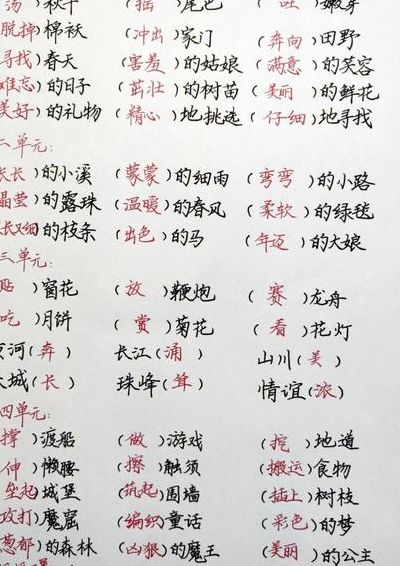 荡）秋千 （摇）尾巴 （吐）嫩芽
脱掉）棉袄 （冲出）家门 （奔向）田野
寻找）春天 （害羞）的姑娘 （满意）的笑容
难忘）的日子 （茁壮）的树苗 （美丽）的鲜花
美好）的礼物 （精心）地挑选 （仔细）地寻找
二单元：
长长）的小溪 （蒙蒙）的细雨 （弯弯）的小路
晶莹）的露珠 （温暖）的春风 （柔软）的绿毯
长又细）的枝条 （出色）的马 （年迈）的大娘
三单元：
贴）窗花 （放）鞭炮 （赛）龙舟
吃）月饼 （赏）菊花 （看）花灯
河（奔） 长江（涌） 山川（美）
长城（长） 珠峰（耸） 情谊（浓）
四单元：
撑）渡船 （做）游戏 （挖）地道
伸）懒腰 （擦）触须 （搬运）食物
垒起）城堡 （筑起）围墙 （插上）树枝
攻打）魔窟 （编织）童话 （彩色）的梦
葱郁）的森林 （凶狠）的魔王 （美丽）的公主